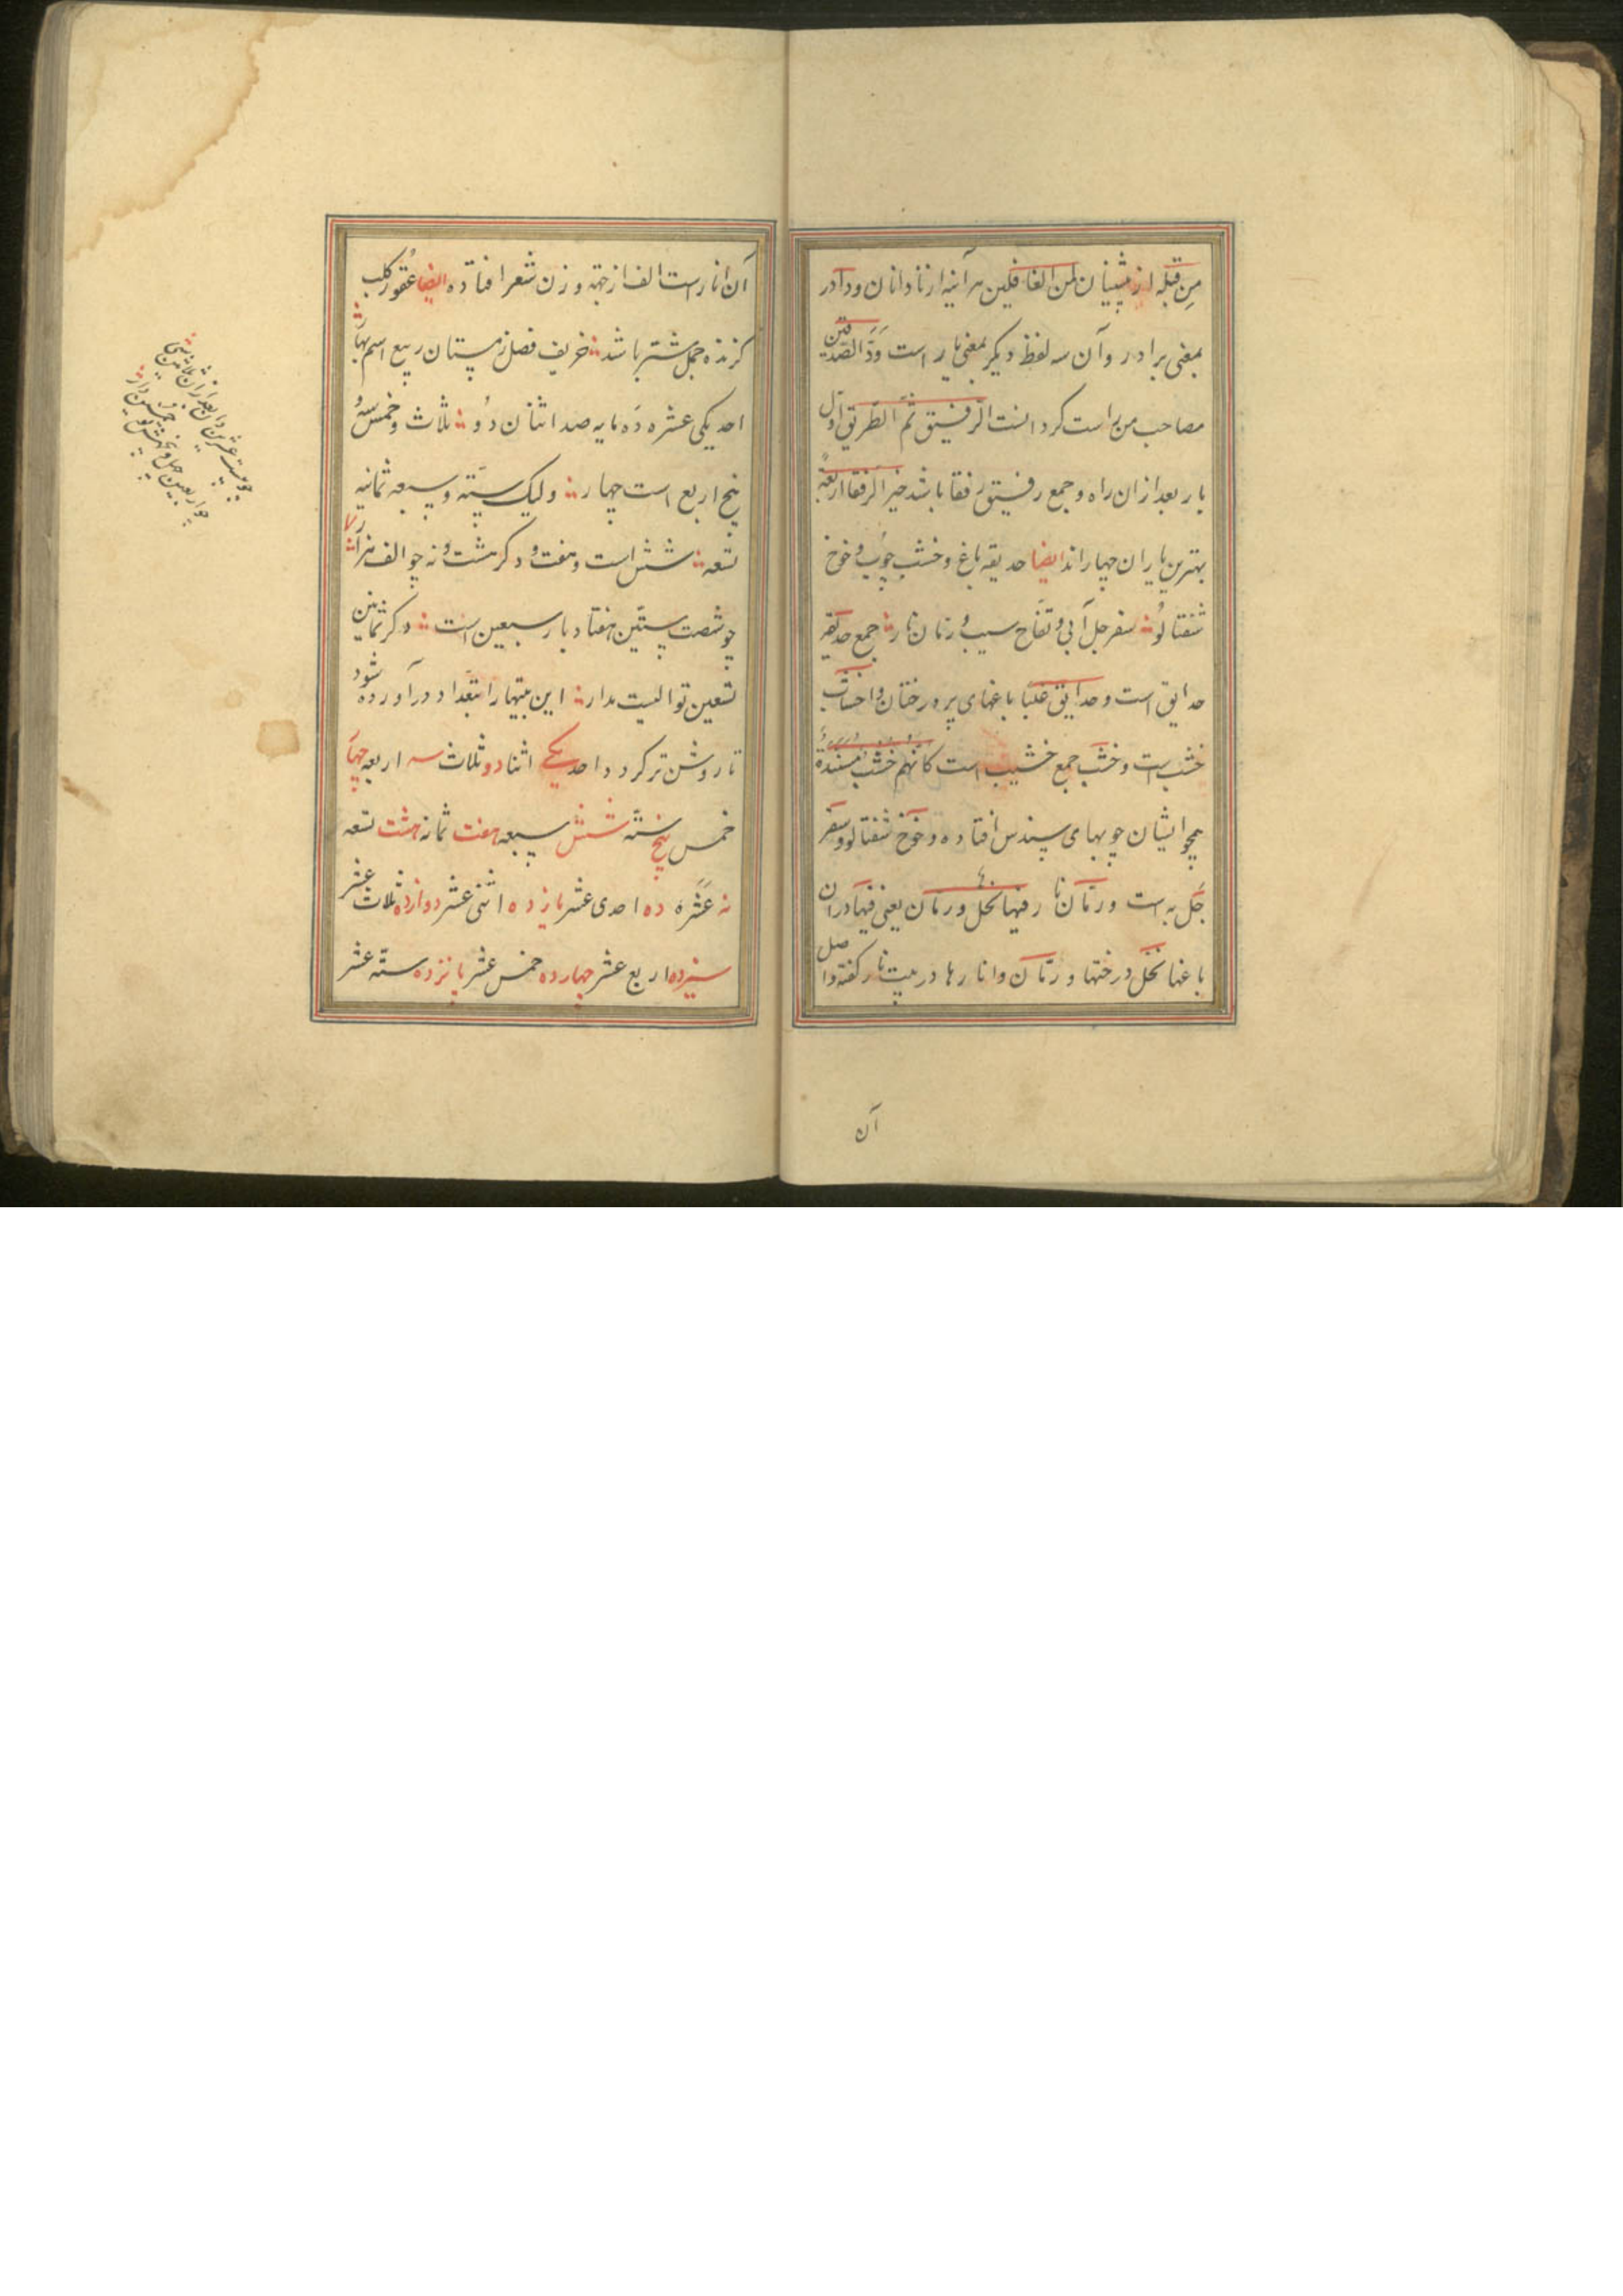 مِن قَبله از پیشینان لمن الغافلین هر آینه از نادانان و دادر
بمعنی برادر و آن سه لفظ دیگر بمعنی یار است وَدَّ الصَّدیقین
مصاحب من براست کرد الرفیق ثمَّ الطّریق اوّل
یار بعد ازان راه و جمع رفیق رفقا باشد خیر الرفقا اربعة
بهترین یاران چهار اند ایضا حدیقه باغ و خشب چوب و خوخ
شفتالو سفرجل آبی و تفّاح سیب و رمان نار جمع حدیقه
حدایق است و حدایق غلبًا باغهای پر درختان و اخشاب
خشب است و خشب جمع خشیب است کانهم خشب مسندة
همچو ایشان چوبهای سپندس افتاده و خوخ شفتالو و سفر
جَل به است و رمّان نار فیها نخل و رمان یعنی فیها در ان
باغها نخل درختها و رمّان و انارها در بیت نار کفته و اصل
آن
آن انار است الف از جهة وزن شعر افتاده ایضا عقور کلب
گزنده جمل شتر باشد خریف فصل زمستان ربیع اسم بهار
احد یکی عشره دَه مایه صد اثنان دُو ثلاث و خمس سهُ
پنج اربع است چهار ولیک ستّه و سبعه ثمانیه
تسعه شش است و هفت و دگر هشت و نه چو الف هزار
چو شصت ستّین هفتاد بار سبعین است دگر ثمانین
تسعین تو الیست مدار این بیتها را بتعداد در آورده شود
تا روشن تر گردد احد یکی اثنا دو ثلاث سه اربعه چهار
خمس پنج ستّه شش سبعه هفت ثمانه هشت تسعه
نه عَشَره ده احدی عشر یازده اثنی عشر دوازده ثلاث عشر
سیزده اربع عشر چهارده خمس عشر پانزده ستّه عشر
چو بیست عشرین دان بعد ازان ثلاثین سی
چو اربعین چهل و پنجه خمسین دان